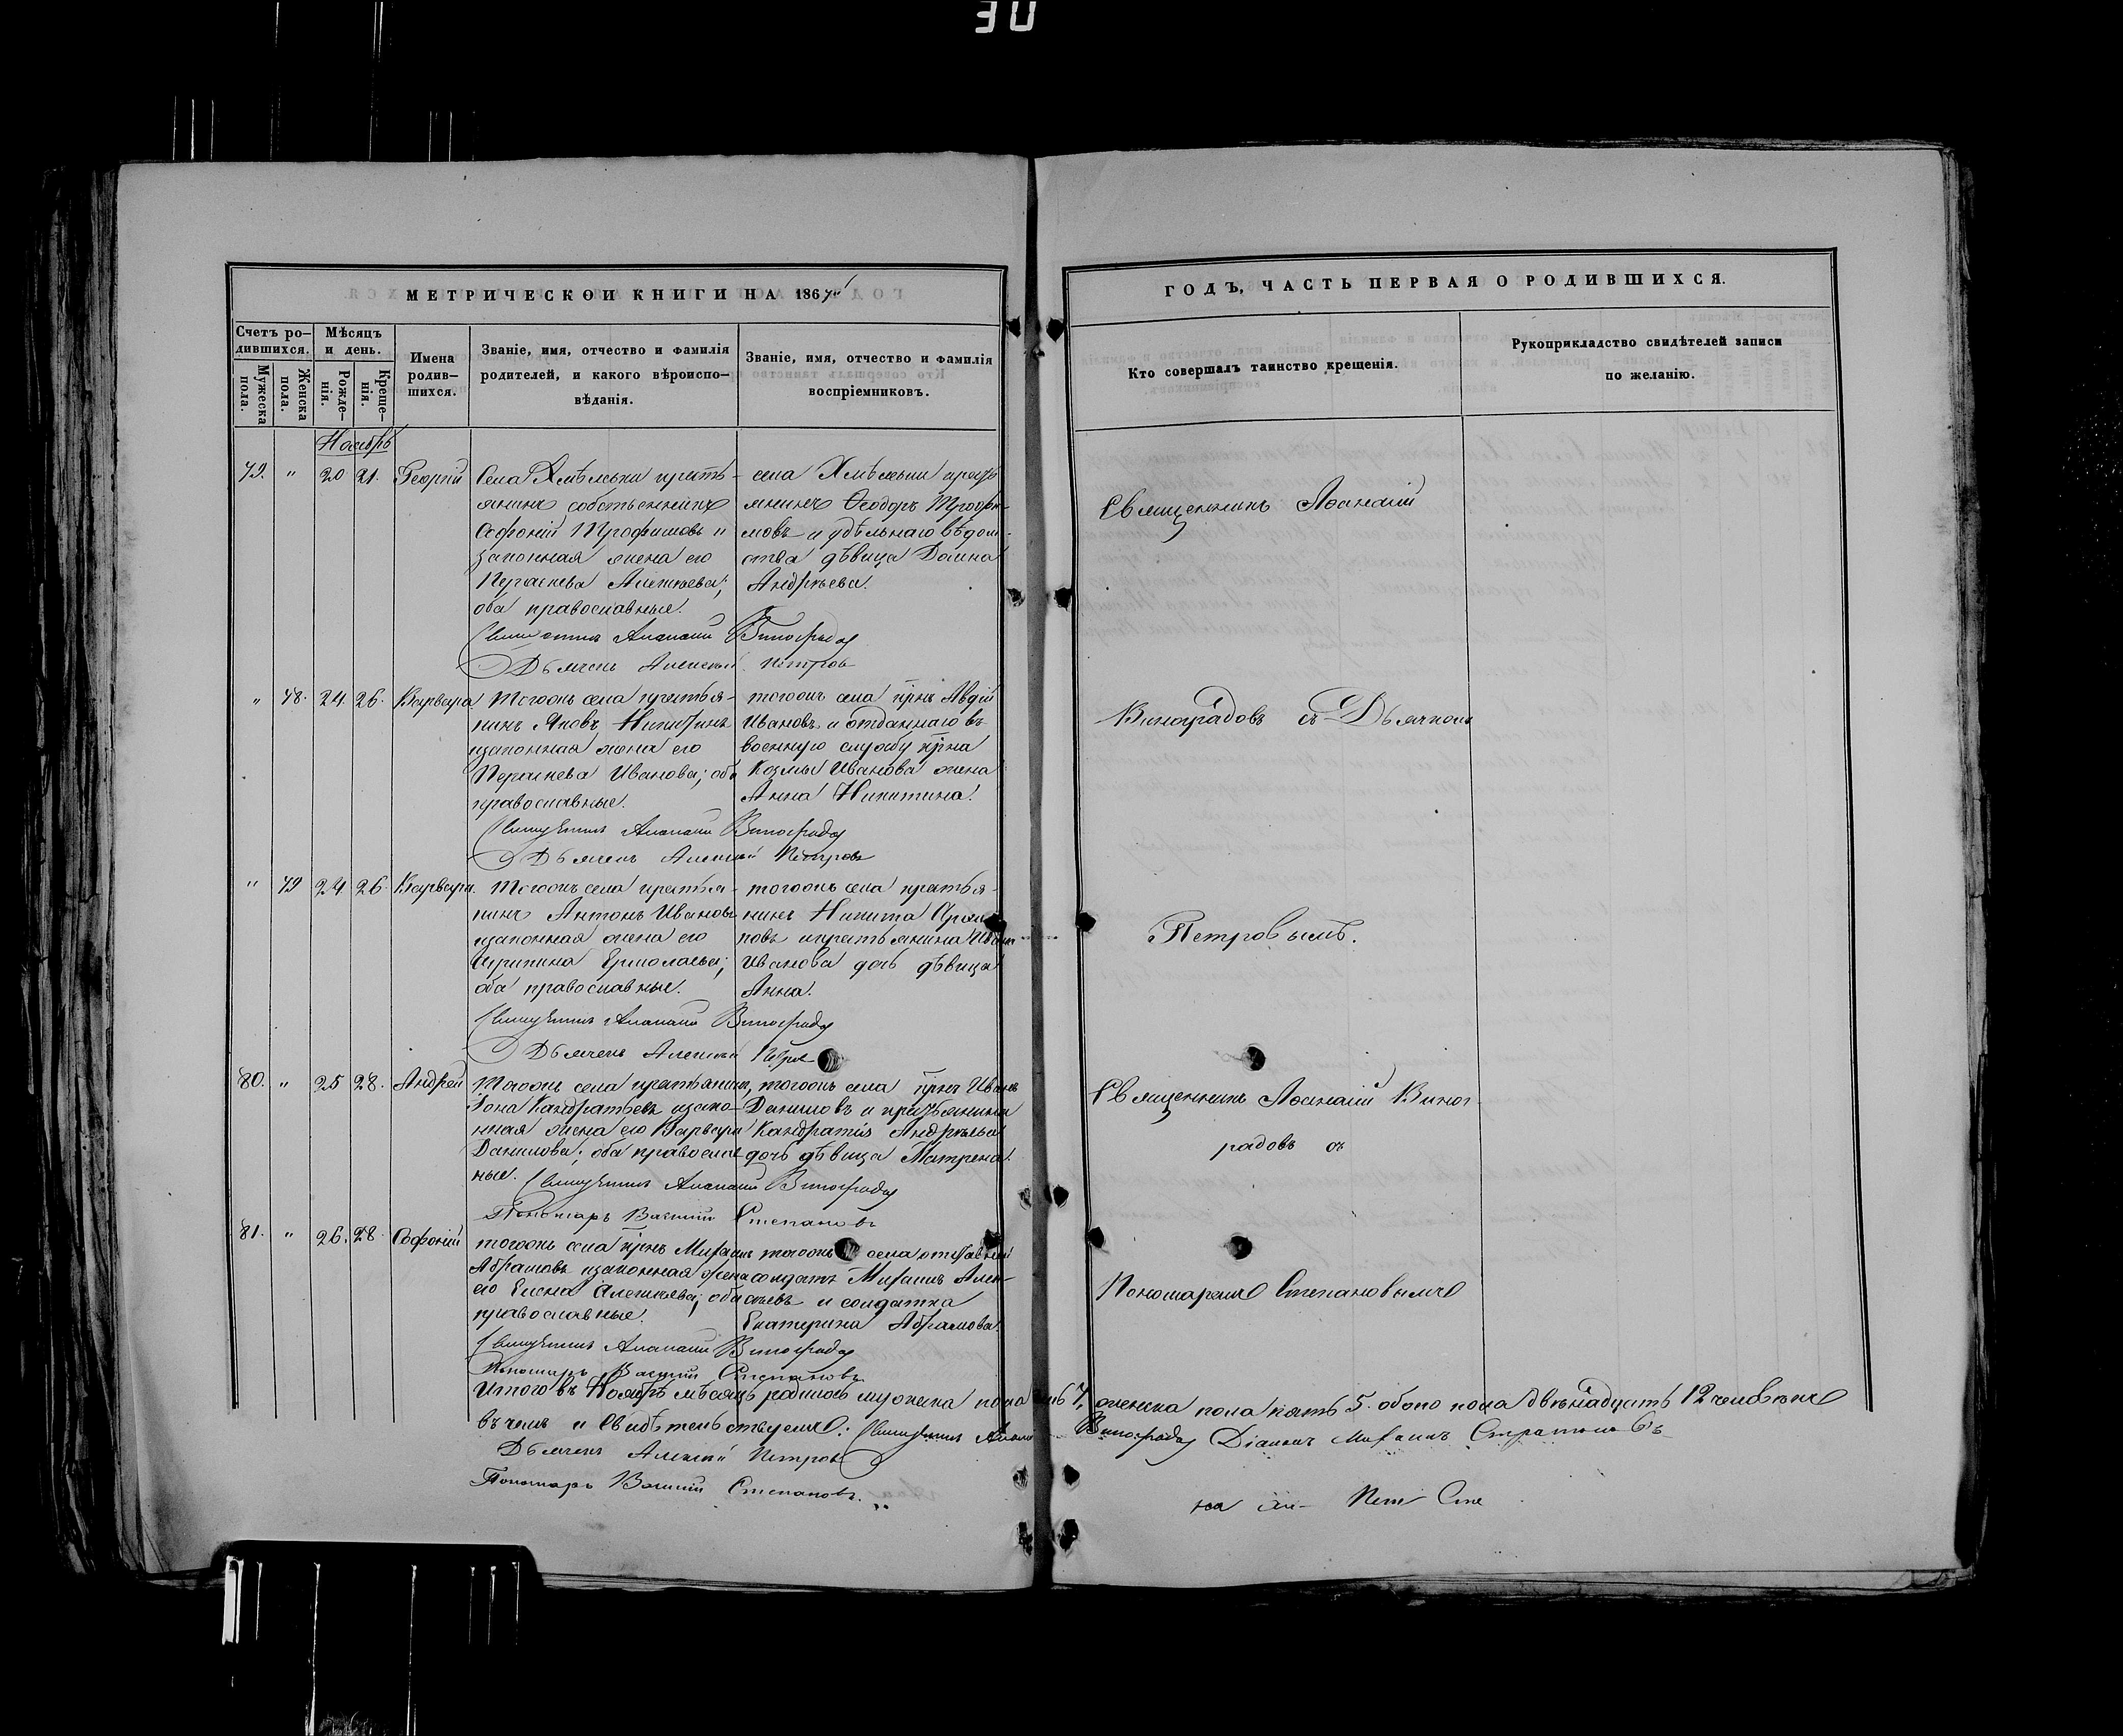 30
МЕТРИЧЕСКОЙ КНИГИ НА 186
ГОДЪ, ЧАСТЬ ПЕРВАЯ О РОДИВШИХСЯ.
Счетъ ро-
дившихся.
Мужеска
пола.
Женска
пола.
Мѣсяцъ
и день.
Рожде-
нія.
Креще-
нія.
Имена
родив-
шихся.
Званіе, имя, отчество и фамилія
родителей, и какого вѣроиспо-
вѣданія.
Званіе, имя, отчество и фамилія
воспріемниковъ.
Кто совершалъ таинство крещенія.
Рукоприкладство свидѣтелей записи
по желанію.
Ноябрь
79. " 20 21. Георгій
Села кресть-
янинъ
Софроній Трофимовъ и
законная жена его
Алексѣева;
оба православные.
Афанасій Виноградов
Дьячекъ Алексѣй Петровъ
села крестья-
янинъ Ѳеодоръ Трофи-
мовъ и удѣльнаго вѣдом-
ства дѣвица Домна
Андреева.
Священникъ Аѳанасій
" 78. 24. 26. Варвара
Тогожъ села крестья-
нинъ Яковъ Никитинъ
изаконная жена его
Иванова; оба
православные.
Афанасій Виноградов
Дьячекъ Алексѣй Петровъ
тогожъ села крнъ Авдій
Ивановъ и отданнаго въ
военную службу крна
Козмы Иванова жена
Анна Никитина.
Виноградовъ съ Дьячкомъ
" 79 24 26. Варвара.
Тогожъ села крестья-
нинъ Антонъ Ивановъ
изаконная жена его
Ермолаева;
оба православные.
Афанасій Виноградов
Дьячекъ Алексѣй
тогожъ села крестья-
нинъ Никита
повъ икрестьянина Ивана
Иванова дочь дѣвица
Анна.
Петровымъ.
80. " 25 28. Андрей
Тогожъ села крестьянинъ
Іона Кандратьевъ изако-
нная жена его Варвара
Данилова; оба православ
ные. Афанасій Виноградов
Пономарь Василій Степановъ
тогожъ села крнъ Иванъ
Даниловъ и крестьянина
Кандратія Андреева
дочь дѣвица Матрена.
Священникъ Аѳанасій Виног
радовъ съ
81. " 26. 28. Софоній
тогожъ села крнъ Михаилъ
Абрамовъ изаконная жена
его Елена Алексѣева; оба
православные.
Афанасій Виноградов
Пономарь Василій Степановъ
тогожъ села отставной
солдатъ Михаилъ Алек-
сѣевъ и солдатка
Екатерина Абрамова.
Пономаремъ Степановымъ
Итого въ Ноябрѣ мѣсяцѣ родилось мужеска пола 7, женска пола пять 5. обоего пола двѣнадцать 12 человѣкъ
въ чемъ и свидѣтельствуемъ: Виноградов Діаконъ Михаилъ
Дьячекъ Алексѣй Петровъ
Пономарь Василій Степановъ.